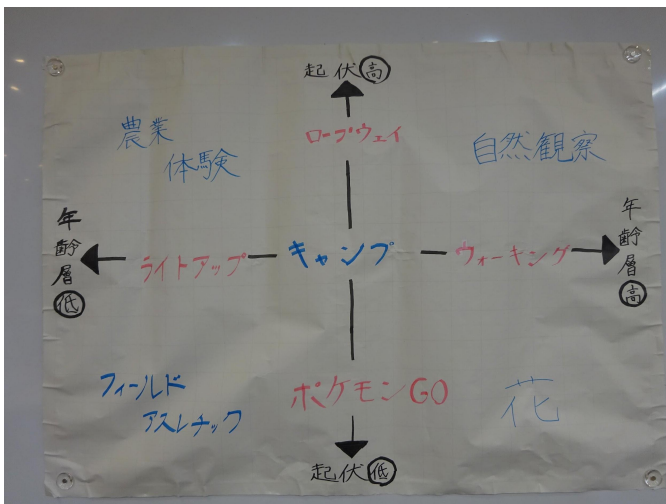 起伏高
ロープウェイ
農業
体験
自然観察
年齢層低
ライトアップ
キャンプ
ウォーキング
年齢層高
フィールド
アスレチック
ポケモンGO
花
起伏低